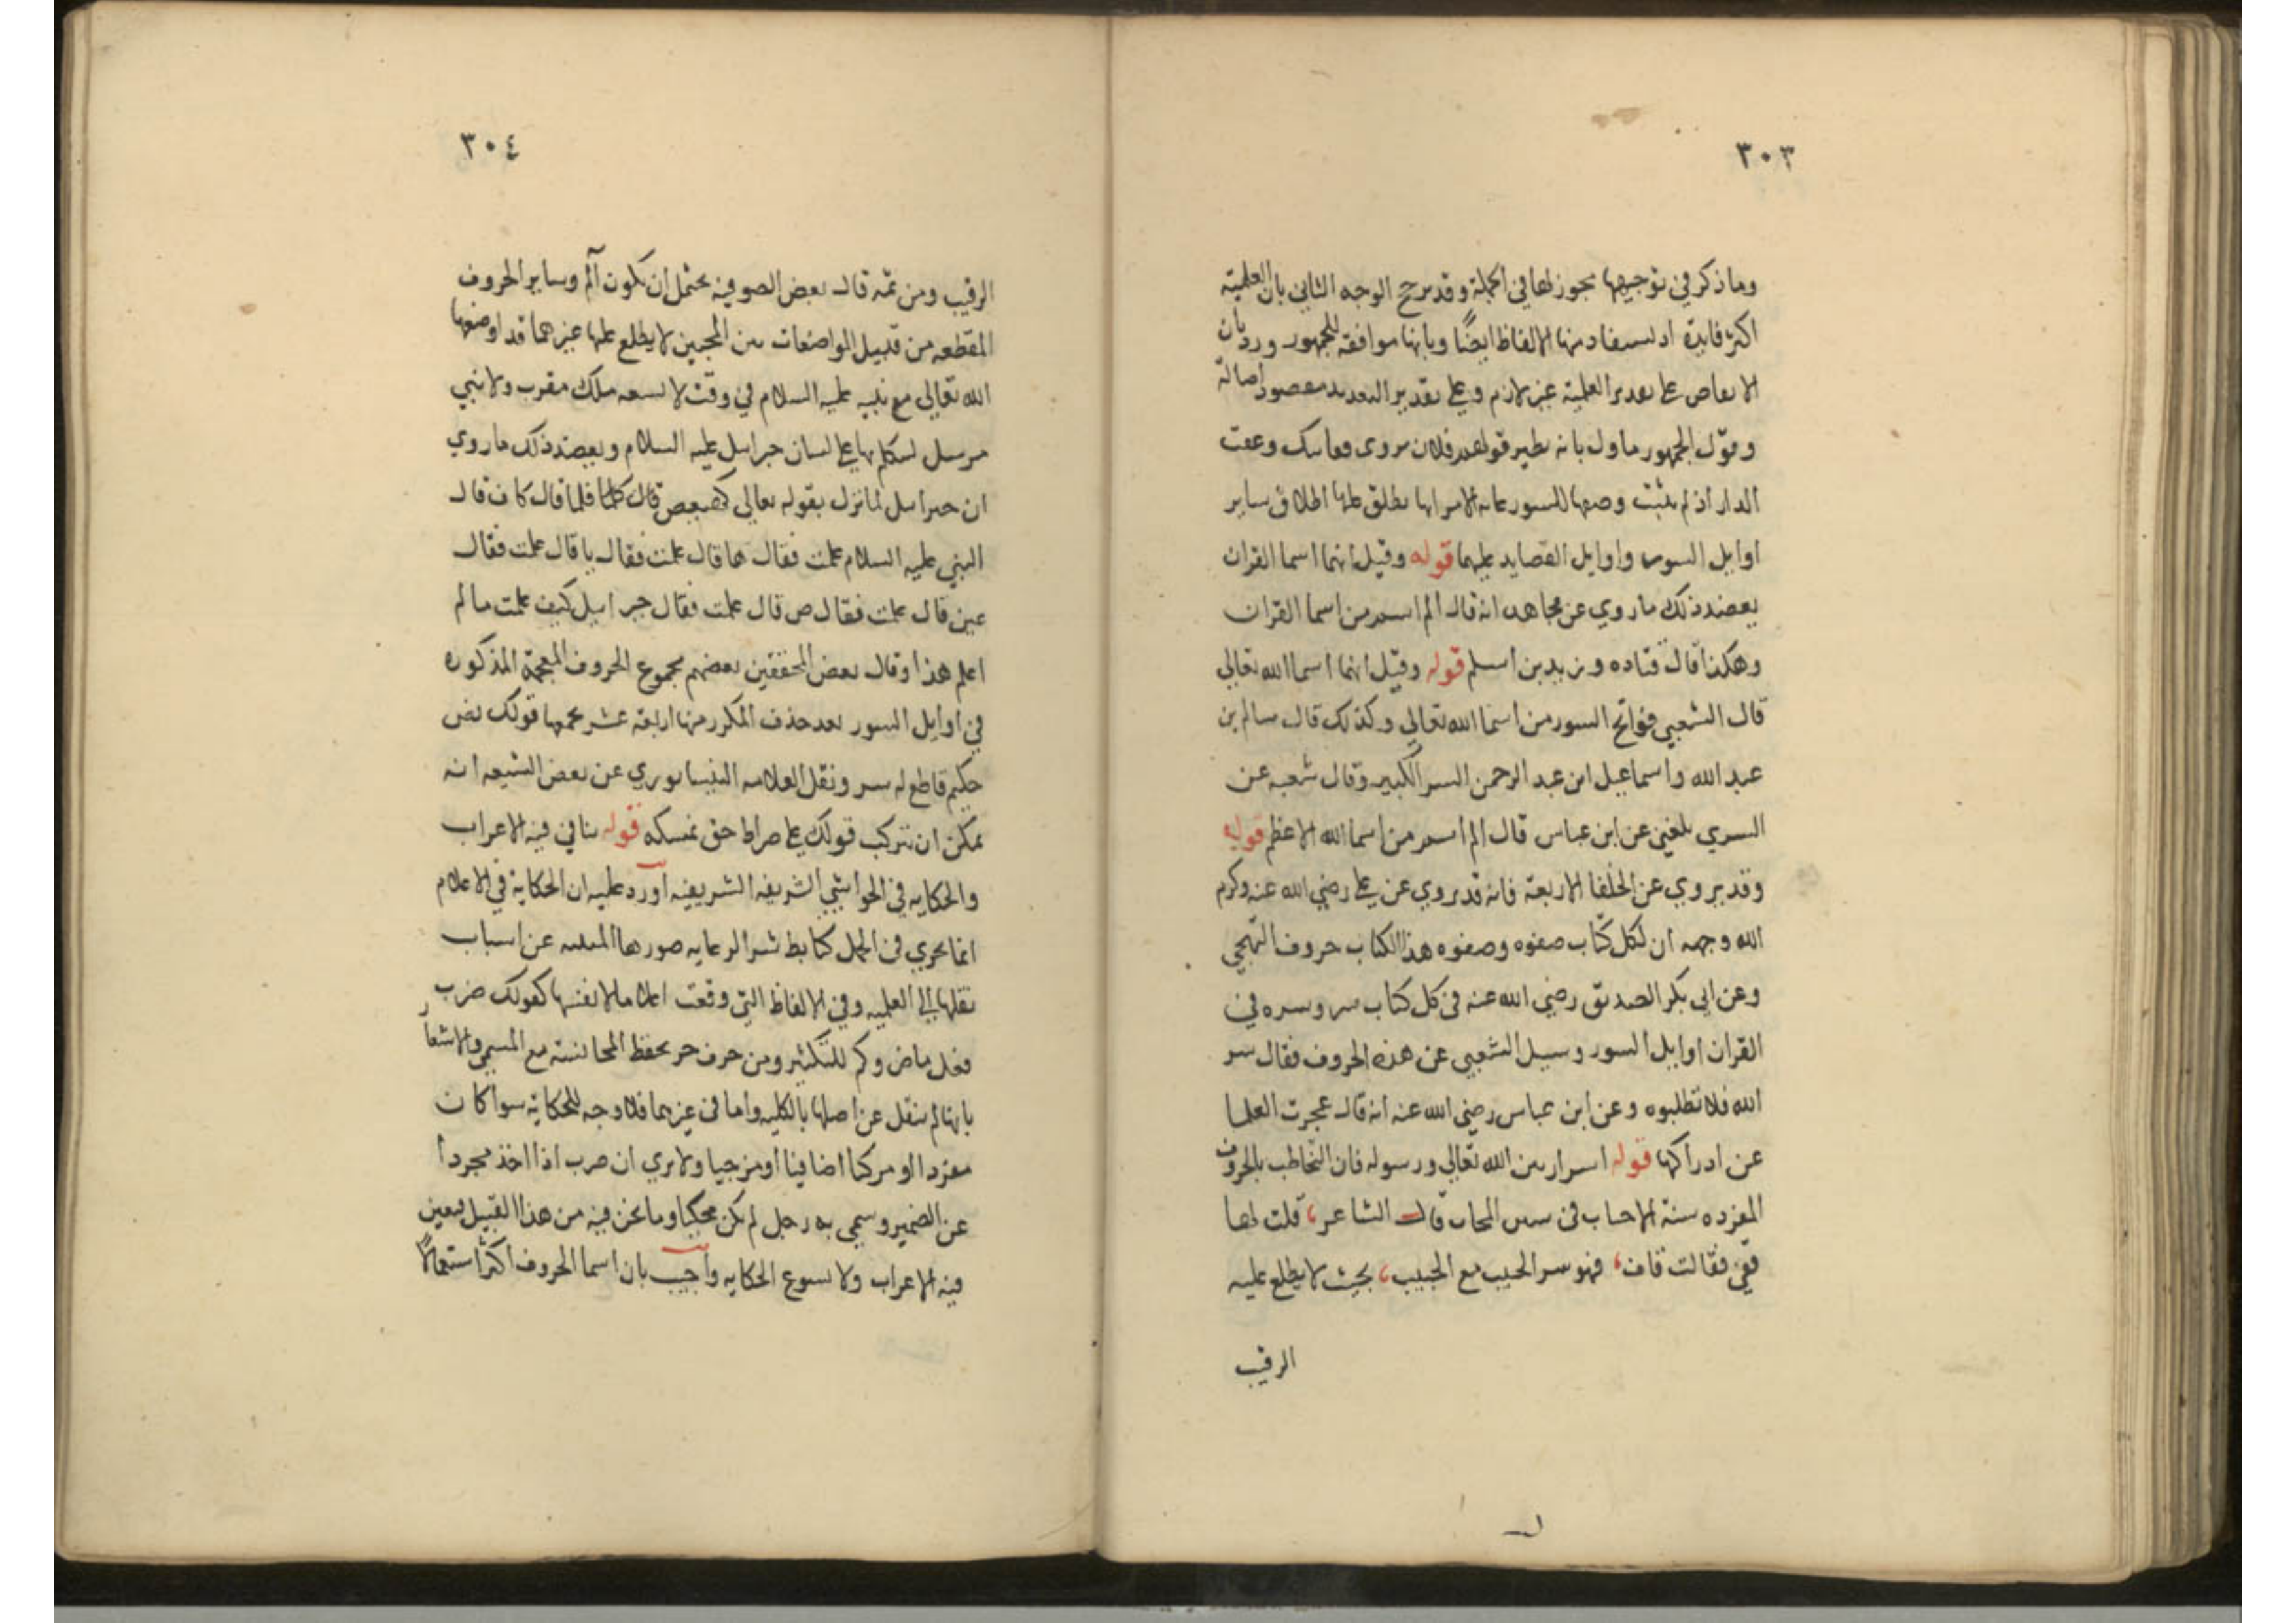 ٣٠٣
وما ذكر في توجيهها مجوز لها في الجملة وقد يرجح الوجه الثاني بان العلمية
اكثر فايدة اذ يستفاد منها الالفاظ ايضًا وبانها موافقة للجمهور ورد بان
الا على العلمية غير لازم وعلى تقدير التعديد مقصود اصالة
وقول الجمهور ماول بانه نظير قولهم فلان يروى قفا نبك وعفت
الدار اذ لم يثبت وضعها للسور غاية الامر انها يطلق عليها اطلاق ساير
اوايل السور واوايل القصايد عليهما قوله وقيل انها اسما القران
يعضد ذلك ما روي عن مجاهد انه قال الم اسم من اسما القران
وهكذا قال قتاده وزيد بن اسلم قوله وقيل انها اسما الله تعالى
قال الشعبي فواتح السور من اسما الله تعالى وكذلك قال سالم بن
عبد الله واسماعيل ابن عبد الرحمن السر الكبير وقال شعبه عن
السري بلغني عن ابن عباس قال الم اسم من اسما الله الاعظم قوله
وقد يروي عن الخلفا الاربعة فانه قد يروي عن على رضي الله عنه وكرم
الله وجهه ان لكل كتاب صفوه وصفوه هذا الكتاب حروف التهجي
وعن ابى بكر الصديق رضي الله عنه فى كل كتاب سر وسره في
القران اوايل السور وسيل الشعبي عن هذه الحروف فقال سر
الله فلا تطلبوه وعن ابن عباس رضى الله عنه انه قال عجرت العلما
عن ادراكها قوله اسرار بين الله تعالى ورسوله فان التخاطب بالحروف
المفرده سنة الاحباب فى المحاب قال الشاعر، قلت لها
قفي فقالت قاف، فهو سر الحبيب مع الحبيب، بحيث لا يطلع عليه
الرقيب
٣٠٤
الرقيب ومن ثمه قال بعض الصوفيه يحتمل ان يكون آلم وساير الحروف
المقطعه من قبيل المواضعات بين المحبين لا يطلع عليها غيرهما قد اوضعها
الله تعالى مع نبيه عليه السلام في وقت لا يسعه ملك مقرب ولا نبي
مرسل ليتكلم بها على لسان جبرايل عليه السلام ويعضد ذلك ما روي
ان جبرايل لما نزل بقوله تعالى كهيعص قال كلما فلما قال كاف قال
النبي عليه السلام علمت فقال ها قال علمت فقال يا قال علمت فقال
عين قال علمت فقال ص قال علمت فقال جبرايل كيف علمت ما لم
اعلم هذا وقال بعض المحققين بعضهم مجموع الحروف المعجمة المذكوره
في اوايل السور بعد حذف المكرر منها اربعة عشر يجمعها قولك نص
حكيم قاطع له سر ونقل العلامه النيسابوري عن بعض الشيعه انه
يمكن ان تتركب قولك على صراط حق نمسكه قوله يتاتى فيه الاعراب
والحكايه في الحواشي الشريفه الشريفيه اورد عليه ان الحكاية في الاعلام
انما يجري فى الجمل كتابط شرا لرعايه صورها عن اسباب
نقلها الى العلميه وفي الالفاظ التي وقعت اعلاما لانفسها كقولك ضرب
فعل ماض وكم للتكثير ومن حرف جر بحفظ المجانسة مع المسمى والاشعار
بانها لم تنقل عن اصلها بالكليه واما فى غيرهما فلا وجه للحكاية سوا كان
مفردا او مركبا اضافيا او مزجيا ولا يري ان ضرب اذا اخذ مجردا
عن الضمير وسمي به رجل لم يكن محكيا وما نحن فيه من هذا القبيل فيعين
فيه الاعراب ولا يسوغ الحكايه واجيب بان اسما الحروف اكثر استعمالا